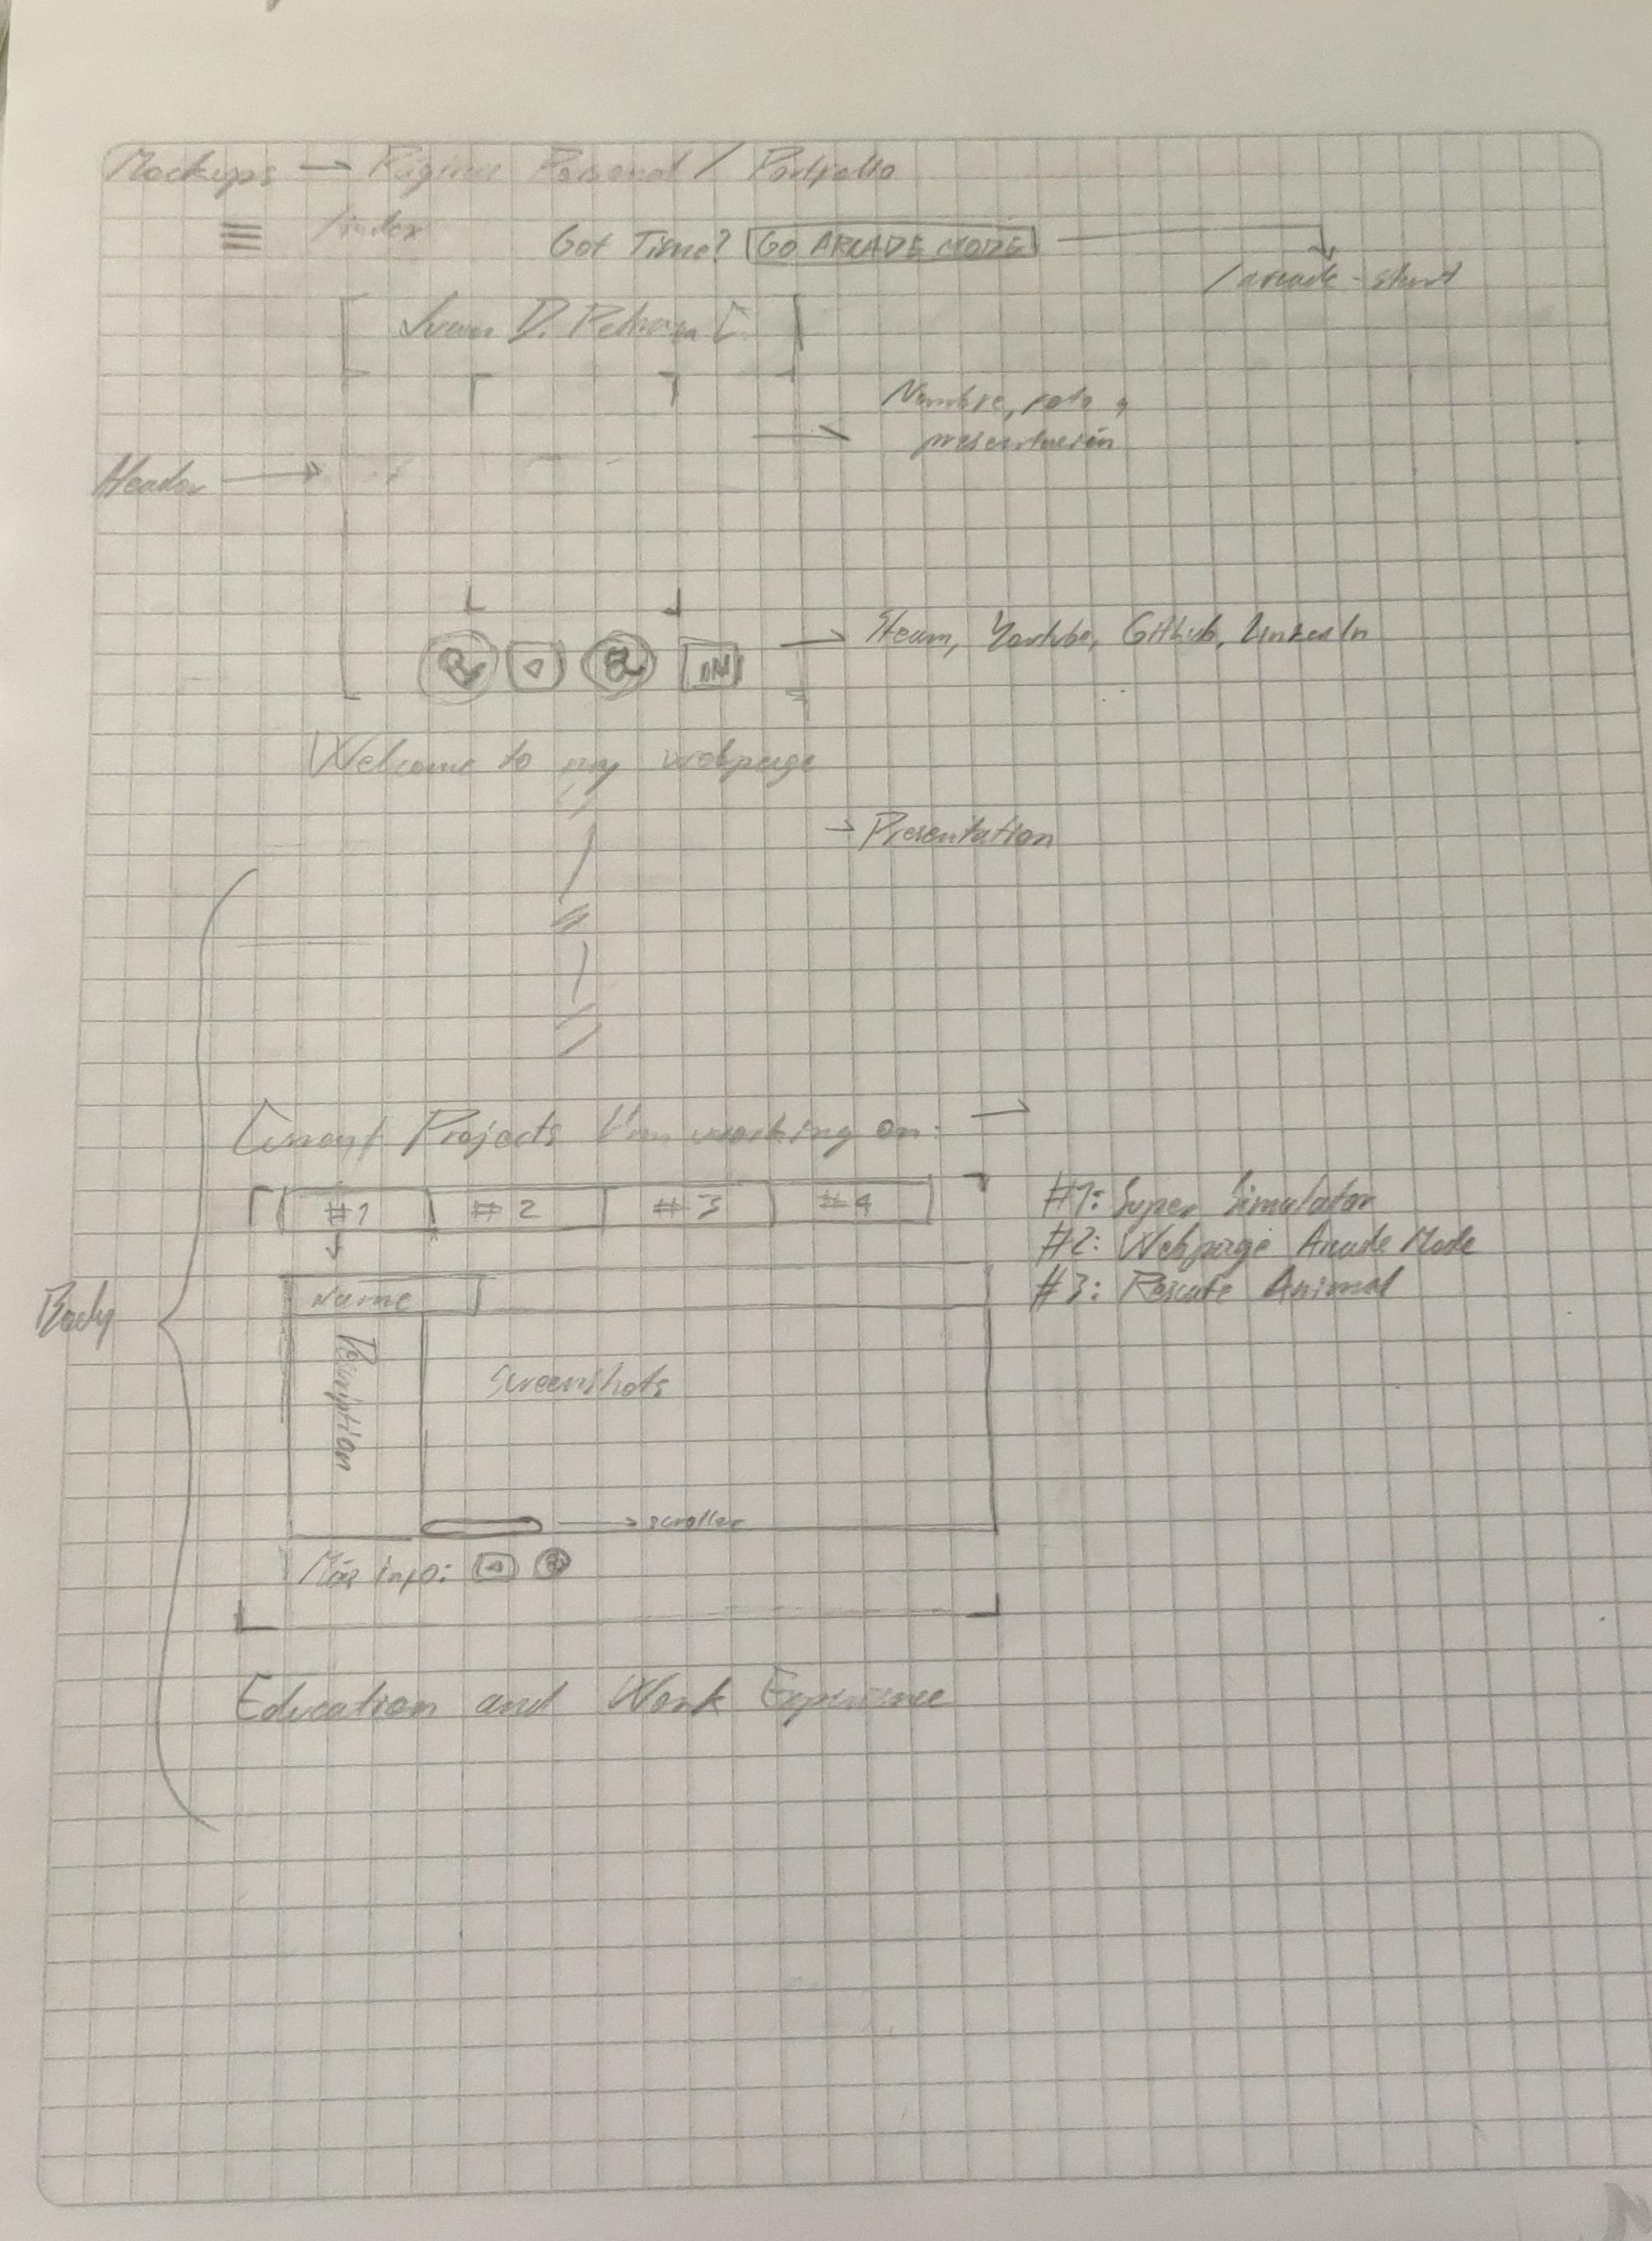 Mockups → Página Personal / Portfolio
/index
Got Time? GO ARCADE MODE
/arcade-start
D.
Nombre, foto y
presentación
Header
Steam, Youtube, Github, LinkedIn
IN
Welcome to my webpage
→ Presentation
Current Projects I'm working on: →
#1 #2 #3 #4
#1: Super Simulator
#2: Webpage Arcade Mode
#3: Rescate Animal
Body
Name
Description
Screenshots
→ scroller
Más info:
Education and Work Experience